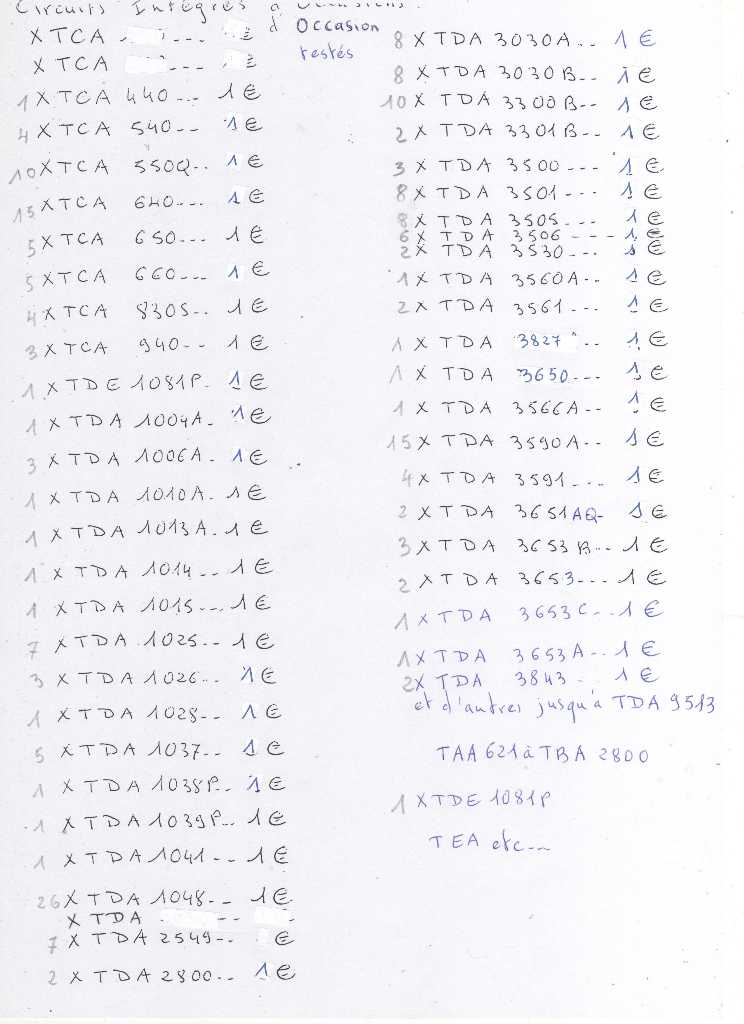 Circuits Intégrés
d'Occasion
testés
X TCA ... €
X TCA ... €
1 X TCA 440... 1 €
4 X TCA 540-- 1 €
10 X TCA 550Q.. 1 €
15 X TCA 640... 1 €
5 X TCA 650... 1 €
5 X TCA 660... 1 €
4 X TCA 830S.. 1 €
3 X TCA 940-- 1 €
1 X TDE 1081P. 1 €
1 X TDA 1004A. 1 €
3 X TDA 1006A. 1 €
1 X TDA 1010A. 1 €
1 X TDA 1013A. 1 €
1 X TDA 1014... 1 €
1 X TDA 1015... 1 €
7 X TDA 1025.. 1 €
3 X TDA 1026.. 1 €
1 X TDA 1028-- 1 €
5 X TDA 1037-- 1 €
1 X TDA 1038P.. 1 €
1 X TDA 1039P.. 1 €
1 X TDA 1041... 1 €
26 X TDA 1048.. 1 €
X TDA --
7 X TDA 2549-- €
2 X TDA 2800.. 1 €
8 X TDA 3030A.. 1 €
8 X TDA 3030B-- 1 €
10 X TDA 3300B-- 1 €
2 X TDA 3301B-- 1 €
3 X TDA 3500--- 1 €
8 X TDA 3501--- 1 €
8 X TDA 3505... 1 €
6 X TDA 3506 ---- 1 €
2 X TDA 3530... 1 €
1 X TDA 3560A.. 1 €
2 X TDA 3561--- 1 €
1 X TDA 3827 .. 1 €
1 X TDA 3650... 1 €
1 X TDA 3566A-- 1 €
15 X TDA 3590A-- 1 €
4 X TDA 3591... 1 €
2 X TDA 3651AQ- 1 €
3 X TDA 3653B.. 1 €
2 X TDA 3653--- 1 €
1 X TDA 3653C..1 €
1 X TDA 3653A.. 1 €
2 X TDA 3843 - 1 €
et d'autres jusqu'à TDA 9513
TAA 621 à TBA 2800
1 X TDE 1081P
TEA etc...